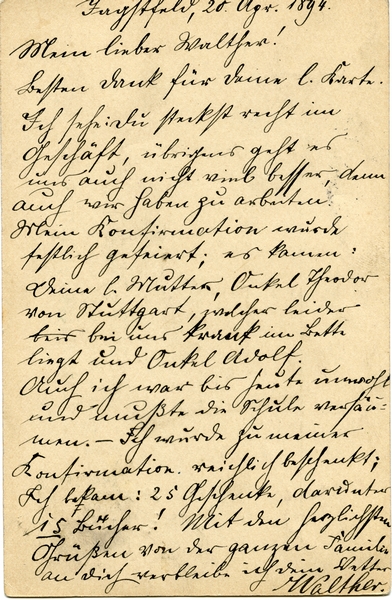 Jagstfeld, 20. Apr. 1894.
Mein lieber Walther!
Besten Dank für deine l. Karte.
Ich sehe: Du steckst recht im
Geschäft, übrigens geht es
uns auch nicht viel besser, denn
auch wir haben zu arbeiten
Mein Konfirmation wurde
festlich gefeiert; es kamen:
Deine l. Mutter, Onkel Theodor
von Stuttgart, welcher leider
beis bei uns krank im Bette
liegt und Onkel Adolf.
Auch ich war bis heute unwohl
und mußte die Schule versäu-
men. — Ich wurde zu meiner
Konfirmation reichlich beschenkt;
Ich bekam: 25 Geschenke, darunter
15 Bücher! Mit den herzlichsten
Grüßen von der ganzen Familie
an dich verbleibe ich dein Vetter
Walther.